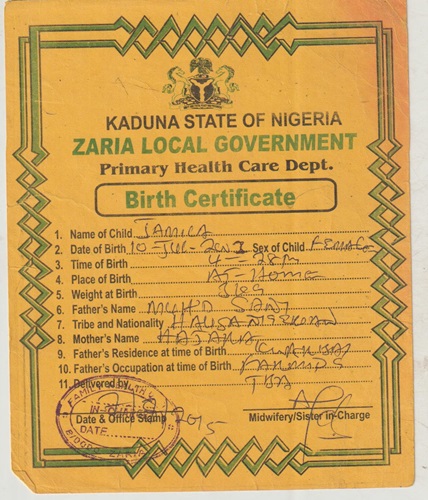 KADUNA STATE OF NIGERIA
ZARIA LOCAL GOVERNMENT
Primary Health Care Dept.
Birth Certificate
1. Name of Child JAMILA
2. Date of Birth 10-JUL- Sex of Child FEMALE
3. Time of Birth 4-28pm
4. Place of Birth AT-HOME
5. Weight at Birth 3kg
6. Father's Name MUHD SANI
7. Tribe and Nationality HAUSA NIGERIAN
8. Mother's Name HAJARA
9. Father's Residence at time of Birth
10. Father's Occupation at time of Birth
11. Delivered by TBA
Date & Office Stamp 2015
Midwifery/Sister in-Charge
FAMILY HEALTH
IN-CHARGE
DATE
ZARIA